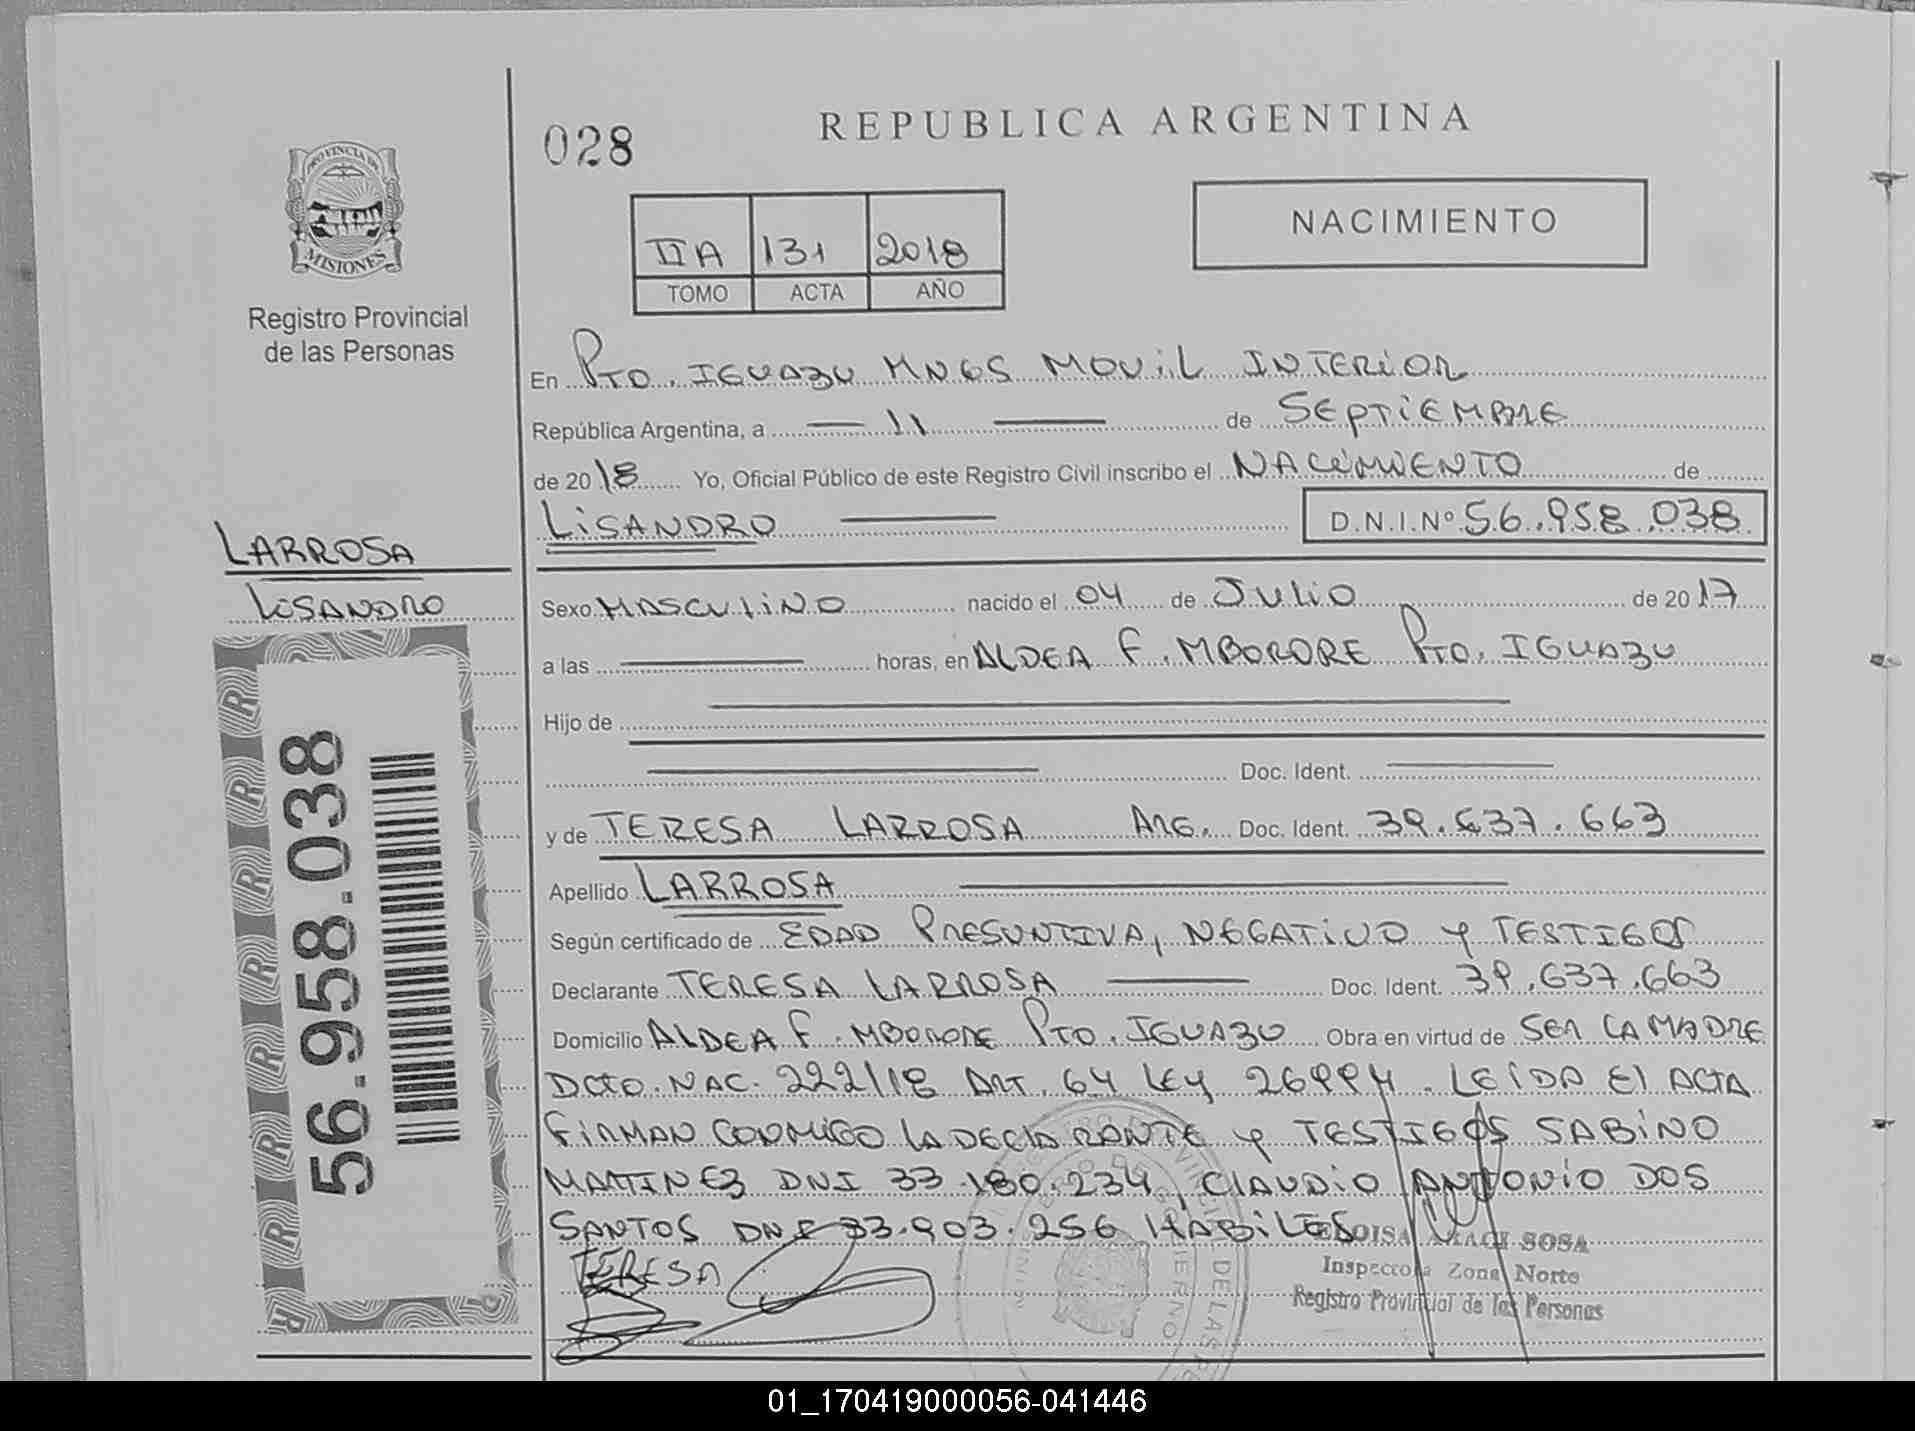 028
REPUBLICA ARGENTINA
PROVINCIA DE
MISIONES
IIA 131 2018
TOMO ACTA AÑO
NACIMIENTO
Registro Provincial
de las Personas
En PTO. IGUAZU MNES MOVIL INTERIOR
República Argentina, a 11 de SEPTIEMBRE
de 2018 Yo, Oficial Público de este Registro Civil inscribo el NACIMIENTO de
LISANDRO D.N.I.Nº 56.958.038
LARROSA
LISANDRO
Sexo MASCULINO nacido el 04 de JULIO de 2017
a las horas, en ALDEA F. MBORORE PTO. IGUAZU
Hijo de
Doc. Ident.
y de TERESA LARROSA ARG. Doc. Ident. 39.637.663
Apellido LARROSA
Según certificado de EDAD PRESUNTIVA, NEGATIVO y TESTIGOS
Declarante TERESA LARROSA Doc. Ident. 39.637.663
Domicilio ALDEA F. MBORORE PTO. IGUAZU Obra en virtud de SER LA MADRE
DCTO. NAC. 222/18 ART. 64 LEY 26994. LEIDA El ACTA
FIRMAN CONMIGO LA DECLARANTE y TESTIGOS SABINO
MARTINEZ DNI 33.180.234, CLAUDIO ANTONIO DOS
SANTOS DNI 33.903.256 HABILES
TERESA
56.958.038
SOSA
Inspectora Zona Norte
Registro Provincial de las Personas
01_170419000056-041446